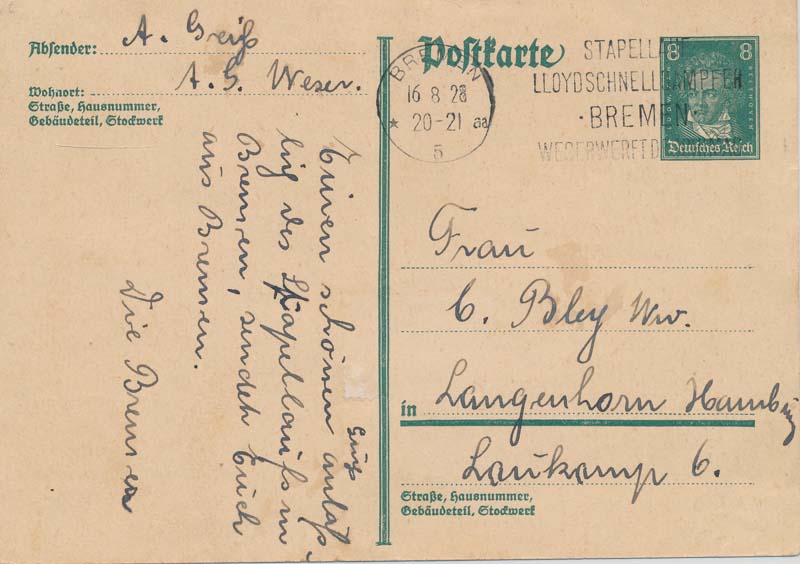 Absender: A. Greiß
A. G. Weser.
Wohnort:
Straße, Hausnummer,
Gebäudeteil, Stockwerk
Einen schönen Gruß anläß-
lig des Stapellaufs m
Bremen, sendet Euch
aus Bremen.
Die Bremer
Postkarte
BREMEN
16 8 28
* 20-21
5
STAPELLAUF
LLOYDSCHNELLDAMPFER
· BREMEN ·
WESERWERFT
8 8
Deutsches Reich
Frau
C. Bley Ww.
in Langenhorn Hamburg
Laukamp 6.
Straße, Hausnummer,
Gebäudeteil, Stockwerk